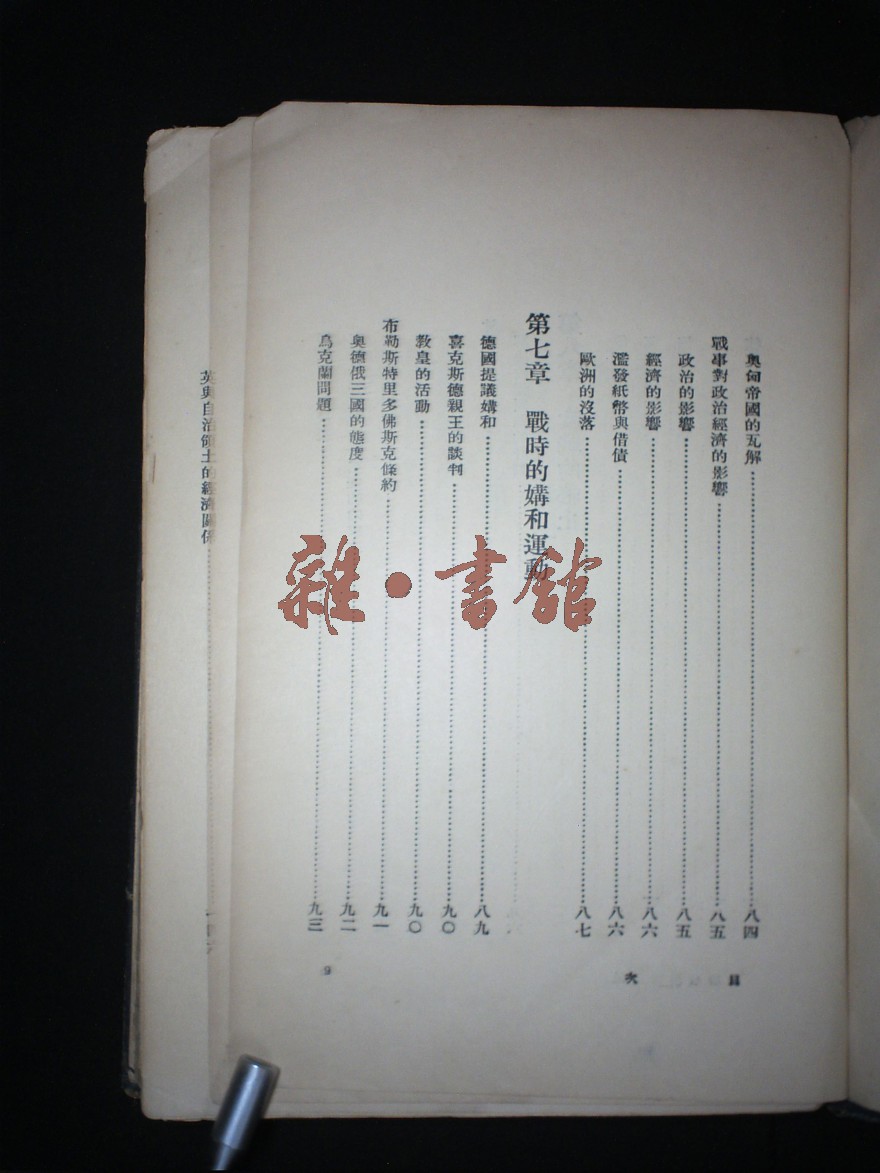 奧匈帝國的瓦解……八四
戰事對政治經濟的影響……八五
政治的影響……八五
經濟的影響……八六
濫發紙幣與借債……八六
歐洲的沒落……八七
第七章 戰時的媾和運動
德國提議媾和……八九
喜克斯德親王的談判……九〇
教皇的活動……九〇
布勒斯特里多佛斯克條約……九一
奧德俄三國的態度……九二
烏克蘭問題……九三
目次
9
英與自治領土的經濟關係
雜·書館